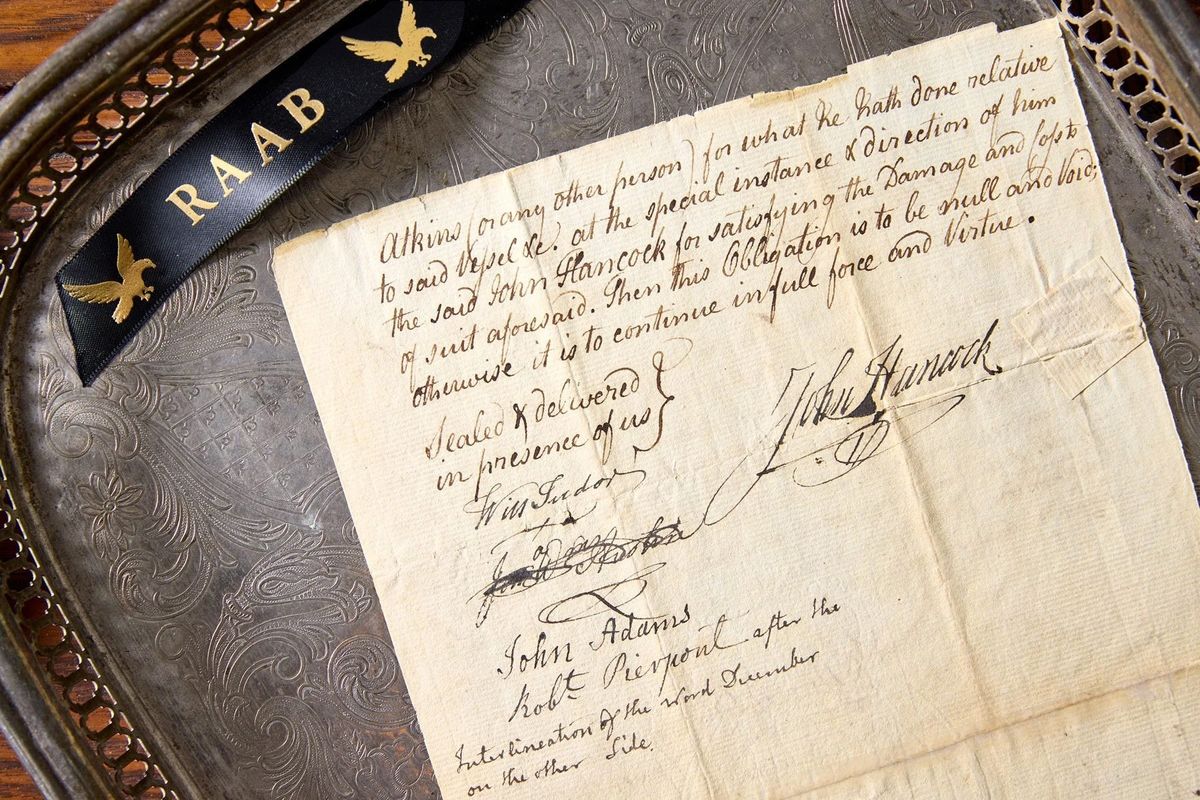 RAAB
Atkins (or any other person) for what he hath done relative
to said Vessel &c. at the special instance & direction of him
the said John Hancock for satisfying the Damage and Losss
of suit aforesaid. Then this Obligation is to be null and Void;
otherwise it is to continue in full force and Virtue.
Sealed & delivered
in presence of us
John Hancock
Will Tudor
John Adams
Robt Pierpont after the
Interlineation of the word December
on the other Side.